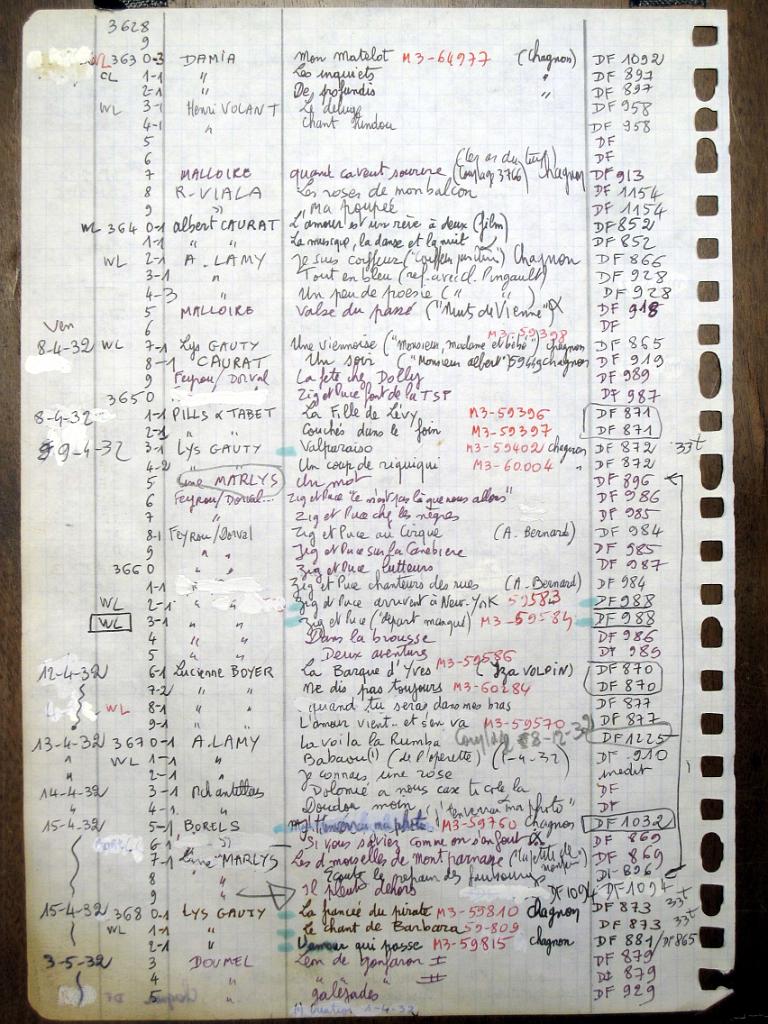 3628
9
WL 363 0-3 DAMIA Mon Matelot M3-64977 (Chagnon) DF 1092
CL 1-1 " Les inquiets " DF 897
2-1 " De profundis " DF 897
WL 3-1 Henri VOLANT Le deluge DF 958
4-1 " Chant hindou DF 958
5 DF
6 DF
7 MALLOIRE quand ca veut sourire Chagnon DF 913
8 R-VIALA Les roses de mon balcon DF 1154
9 " Ma poupée DF 1154
WL 364 0-1 albert CAURAT L'amour est un rêve à deux (film) DF 852
1-1 " " La musique, la danse et la nuit DF 852
WL 2-1 A. LAMY Je suis coiffeur Chagnon DF 866
3-1 " Tout en bleu (ref. avec Cl. Pingault) DF 928
4-3 " Un peu de poesie ( " " ) DF 928
5 MALLOIRE Valse du passé ("Nuits de Vienne") DF 918
6 DF
Ven
8-4-32 WL 7-1 Lys GAUTY Une viennoise ("Monsieur, madame et bébé") M3-59398 Chagnon DF 865
8-1 CAURAT Un soir ("Monsieur albert") Chagnon DF 919
9 Feyrou/Dorval La fête chez Dolly DF 989
3650 Zig et Puce font de la TSF DF 987
8-4-32 1-1 PILLS & TABET La Fille de Lévy M3-59396 DF 871
2-1 " Couchés dans le foin M3-59397 DF 871
9-4-32 3-1 LYS GAUTY Valparaiso M3-59402 chagnon DF 872 33t
4-2 " Un coup de riquiqui M3-60.004 " DF 872
5 Line MARLYS Un mot DF 896
6 Feyrou/Dorval... Zig et Puce "ce n'est pas là que nous allons" DF 986
7 " Zig et Puce chez les nègres DF 985
8-1 Feyrou/Dorval Zig et Puce au Cirque (A. Bernard) DF 984
9 " " Zig et Puce sur la Canebiere DF 985
3660 Zig et Puce lutteurs DF 987
1-1 Zig et Puce chanteurs des rues (A. Bernard) DF 984
WL 2-1 " " Zig et Puce arrivent à New-York 59583 DF 988
WL 3-1 " " Zig et Puce (départ manqué) M3-59584 DF 988
4 " " Dans la brousse DF 986
5 " " Deux aventures DF 989
12-4-32 6-1 Lucienne BOYER La Barque d'Yves M3-59586 (Iza VOLPIN) DF 870
7-2 " " Ne dis pas toujours M3-60284 DF 870
WL 8-1 " " quand tu seras dans mes bras DF 877
9-1 " " L'amour vient.. et s'en va M3-59570 DF 877
13-4-32 367 0-1 A. LAMY La voila la Rumba 8-12-32 DF 1225
" WL 1-1 " Babaou (1) (de l'operette) (1-4-32) DF 910
" 2-1 " Je connais une rose inedit
14-4-32 3-1 Mch antillas Dolomié a nous case ti cole la DF
" 4-1 " Doudou moin DF
15-4-32 5-1 BORELS "J'enverrai ma photo" M3-59760 Chagnon DF 1032
6-1 " Si vous saviez comme on s'en fout DF 869
7-1 Line MARLYS Les d'moiselles de Montparnasse DF 869
8 " Ecoute le refrain des faubourgs DF 896
9 " Il pleut dehors DF 1094 DF 1094
15-4-32 368 0-1 LYS GAUTY La fiancé du pirate M3-59810 Chagnon DF 873 33t
WL 1-1 " Le chant de Barbara 59-809 DF 873 33t
2-1 " L'amour qui passe M3-59815 chagnon DF 881/DF865
3-5-32 3 DOUMEL Leon de gonfaron I DF 879
4 " " " II DF 879
5 " galéjades DF 929
(1) création 1-4-32